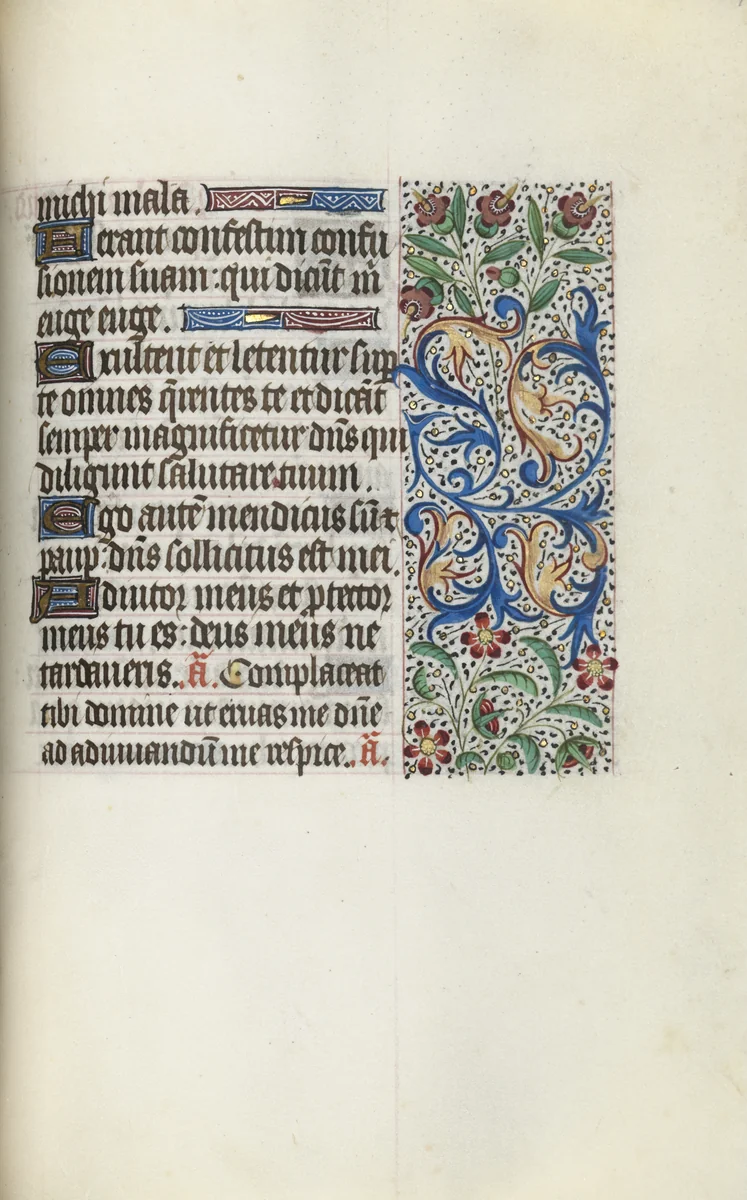 michi mala.
Ferant confestim confu
sionem suam: qui dicūt m̄
euge euge.
Exultent et letentur sup
te omnes q̄rentes te et dicāt
semper magnificetur dn̄s qui
diligunt salutare tuum.
Ego autē mendicus sū et
paup: dn̄s sollicitus est mei.
Adiutor meus et ptector
meus tu es: deus meus ne
tardaueris. ā. Complaceat
tibi domine ut eruas me dn̄e
ad adiuuandū me respice. ā.